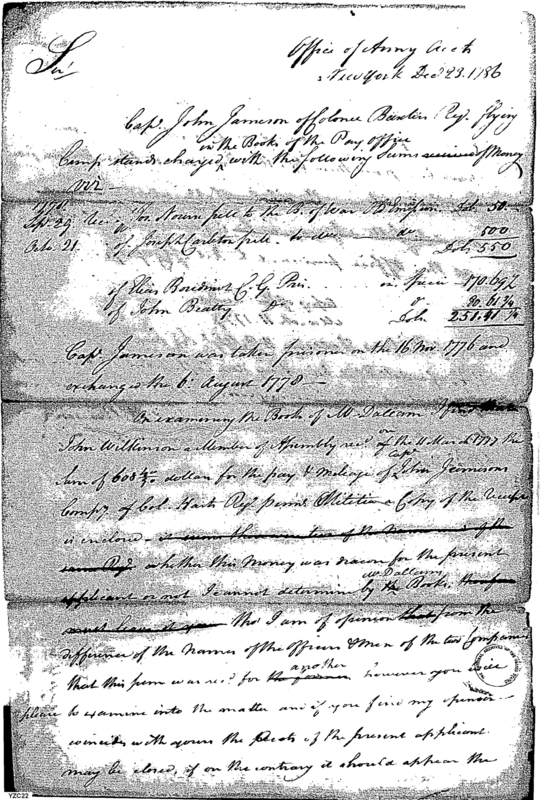 Sir,
Office of Army Accts
New York Decr 23. 1786
Capt. John Jameson of Colonel Baxters Regt. flying
in the Books of the Pay Office
Camp stands charged with the following Sums received of Money
viz -
Sept. 29 Recd. of Jos. Nourse
to the B. of War Emissn. Dols. 50.
Octo. 21 of Joseph Carlton do 500
Dols. 550
of Elias Boudinot C. G. Pris. in Specie 170.69 2/
of John Beatty Do
Dols.
Capt. Jameson was taken prisoner on the 16 Nov. 1776 and
exchanged the 6. August 1778 —
On examining the Book of Mr Dallam I find that
John Wilkinson a Member of Assembly recd. on the 11 March 1777 the
Sum of dollars for the pay & mileage of Capt John Jamesons
Compy. of Col. Harts Regt Penna. Militia a Copy of the receipt
is enclosed
whether this Money was drawn for the present
applicant or not I cannot determine by Mr Dallams Books.
must leave it you tho' I am of opinion that from the
difference of the Names of the Officers & Men of the two Companies
that this sum was recd. for the former another however you will
please to examine into the matter and if you find my opinion
coincides with yours the Accts of the present applicant
may be closed, if on the contrary it should appear the
YZC22